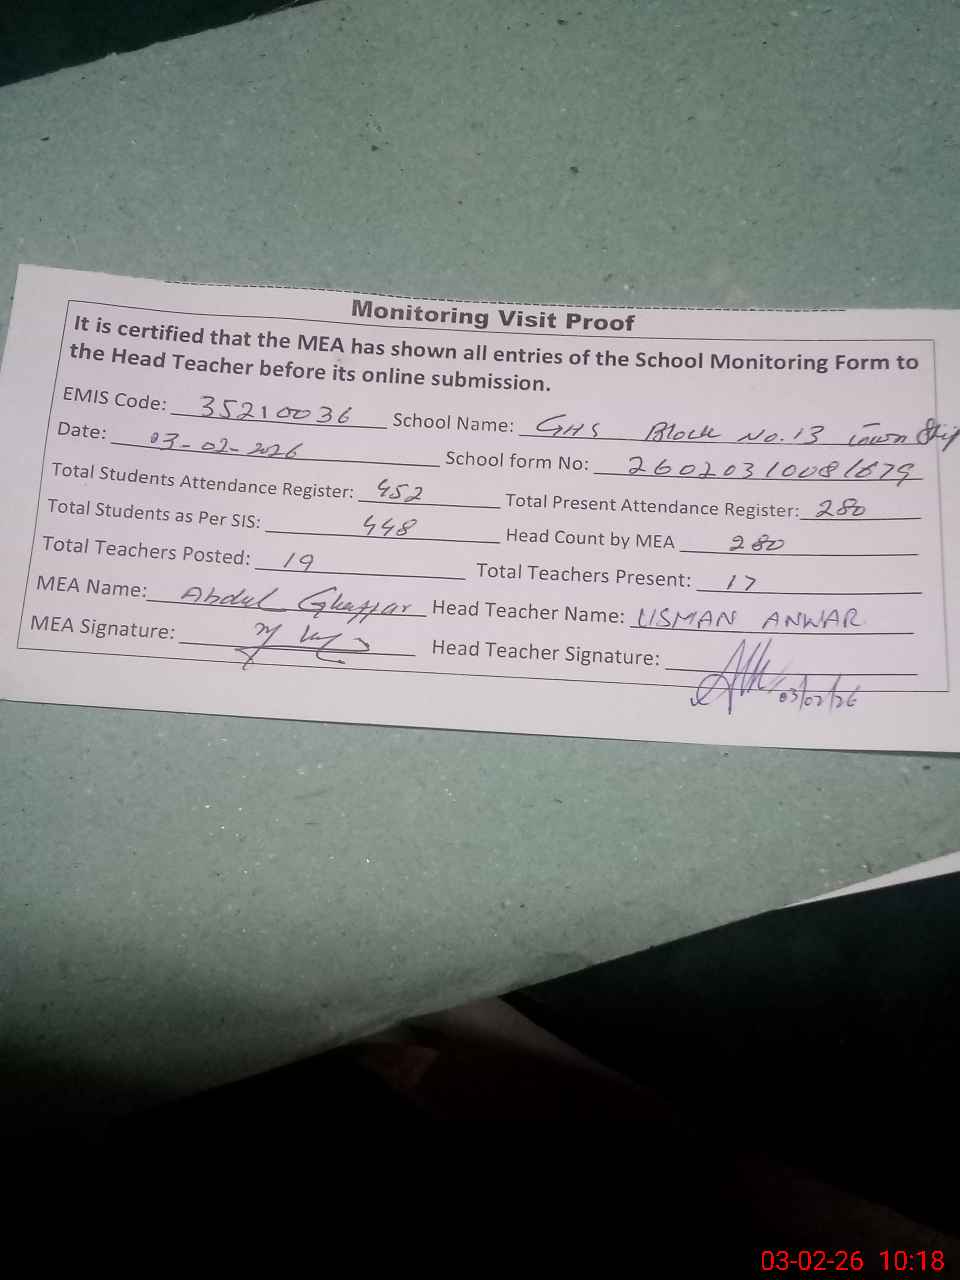 Monitoring Visit Proof
It is certified that the MEA has shown all entries of the School Monitoring Form to
the Head Teacher before its online submission.
EMIS Code: 35210036 School Name: GHS Block No. 13 Town Ship
Date: 03-02-2026 School form No: 26020310081879
Total Students Attendance Register: 452 Total Present Attendance Register: 280
Total Students as Per SIS: 448 Head Count by MEA 280
Total Teachers Posted: 19 Total Teachers Present: 17
MEA Name: Abdul Ghaffar Head Teacher Name: USMAN ANWAR
MEA Signature: Head Teacher Signature:
03/02/26
03-02-26 10:18